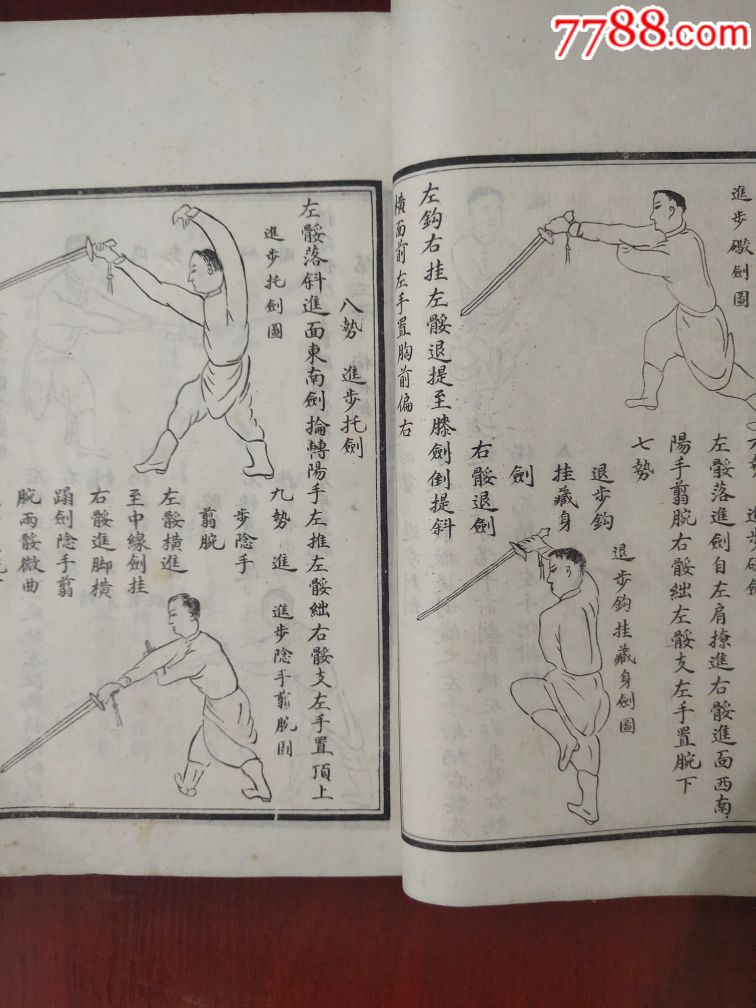 7788.com
進步砍劍圖
左骽落進劍自左肩撩進右骽進面西南
陽手翦腕右骽絀左骽支左手置腕下
七勢
退步鈎
挂藏身
劍
退步鈎挂藏身劍圖
右骽退劍
左鈎右挂左骽退提至膝劍倒提斜
橫面前左手置胸前偏右
八勢 進步托劍
左骽落斜進面東南劍掄轉陽手左推左骽絀右骽支左手置頂上
進步托劍圖
九勢 進
步陰手
翦腕
進步陰手翦腕圖
左骽橫進
至中線劍挂
右骽進脚橫
蹋劍陰手翦
腕兩骽微曲